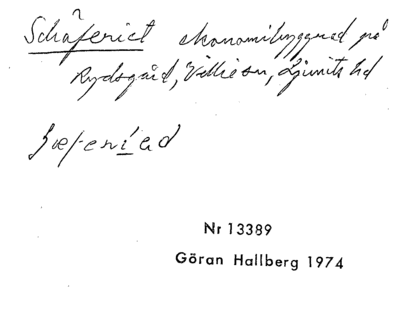 Schäferiet ekonomibyggnad på
Rydsgård, Villie sn, Ljunits hd
Nr 13389
Göran Hallberg 1974